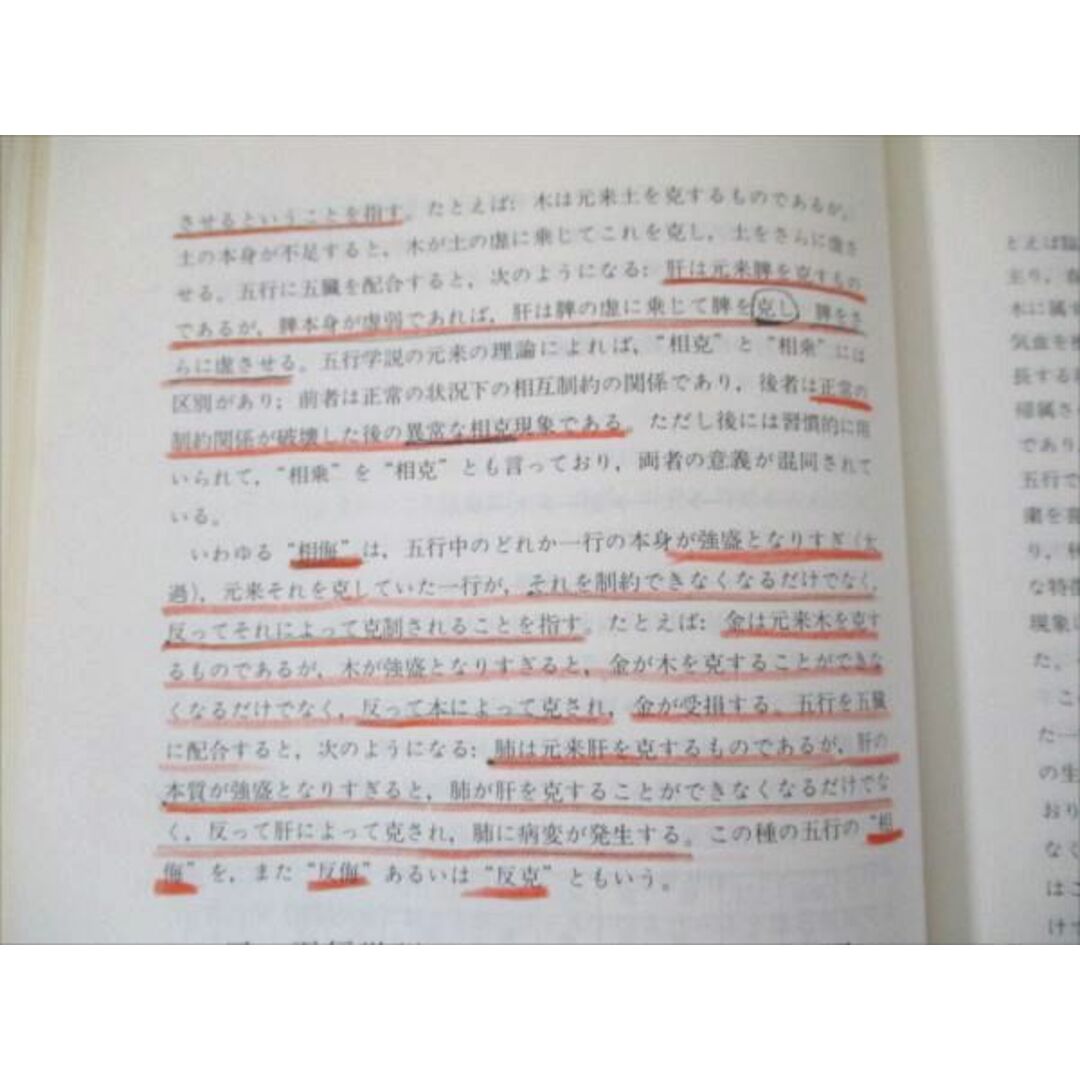 させるということを指す。たとえば：木は元来土を克するものであるが，
土の本身が不足すると，木が土の虚に乗じてこれを克し，土をさらに虚さ
せる。五行に五臓を配合すると，次のようになる：肝は元来脾を克すもの
であるが，脾本身が虚弱であれば，肝は脾の虚に乗じて脾を克し 脾をさ
らに虚させる。五行学説の元来の理論によれば，“相克”と“相乗”には
区別があり；前者は正常の状況下の相互制約の関係であり，後者は正常の
制約関係が破壊した後の異常な相克現象である。ただし後には習慣的に用
いられて，“相乗”を“相克”とも言っており，両者の意義が混同されて
いる。
いわゆる“相侮”は，五行中のどれか一行の本身が強盛となりすぎ（太
過），元来それを克していた一行が，それを制約できなくなるだけでなく，
反ってそれによって克制されることを指す。たとえば：金は元来木を克す
るものであるが，木が強盛となりすぎると，金が木を克することができな
くなるだけでなく，反って木によって克され，金が受損する。五行を五臓
に配合すると，次のようになる：肺は元来肝を克するものであるが，肝の
本質が強盛となりすぎると，肺が肝を克することができなくなるだけでな
く，反って肝によって克され，肺に病変が発生する。この種の五行の“相
侮”を，また“反侮”あるいは“反克”ともいう。
とえば
主り，
木に属
気血を
長する
帰属さ
であり
五行で
粛を
り，
な特徴
現象
た。
こ
た一
の生
おり
なく
はこ
けで